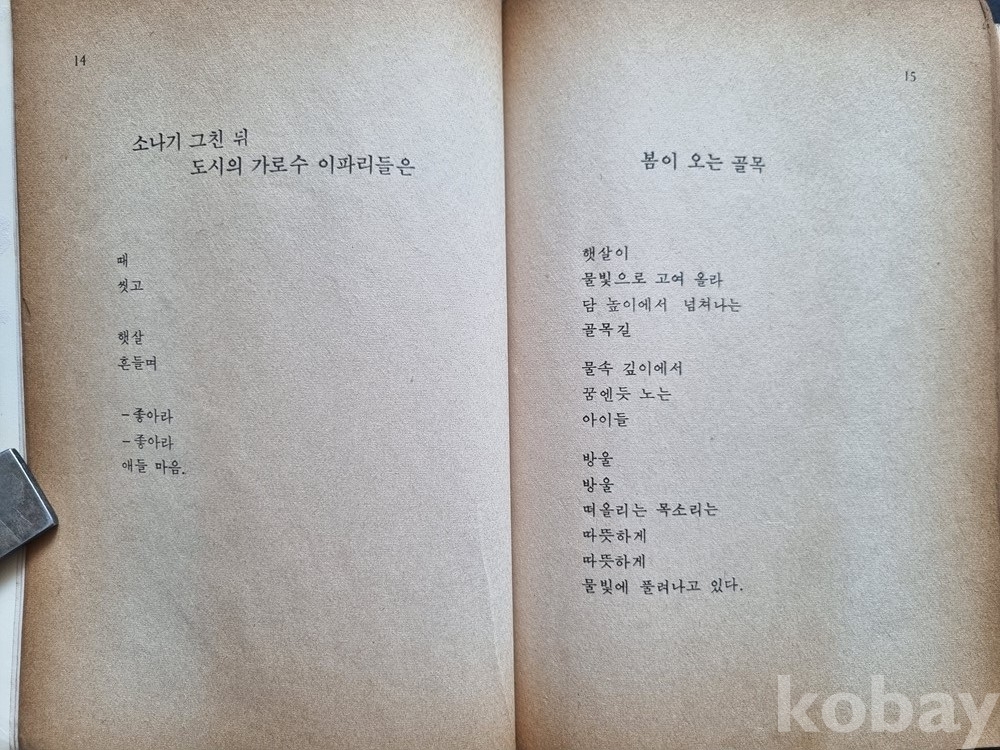 14
소나기 그친 뒤
도시의 가로수 이파리들은
때
씻고
햇살
흔들며
-좋아라
-좋아라
애들 마음.
15
봄이 오는 골목
햇살이
물빛으로 고여 올라
담 높이에서 넘쳐나는
골목길
물속 깊이에서
꿈엔듯 노는
아이들
방울
방울
떠올리는 목소리는
따뜻하게
따뜻하게
물빛에 풀려나고 있다.
kobay